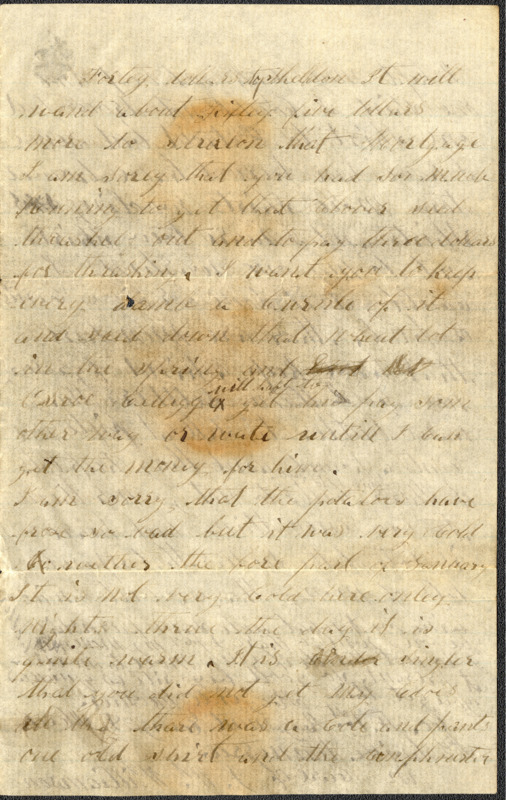 Fortey dollars to Sheldon It will
want about sixtey five dollars
more to that Mortgage
I am sorey that you had so much
running to get that clover seed
thrashed out and to pay three dolars
for thrashing. I want you to keep
every a of it
and seed down that wheat lot
in the spring and Let
will hay to
get his pay som
other way or wate untill I can
get the money for him.
I am sorry that the potatoes have
froze so bad but it was very cold
wether the fore part of January
It is not very cold here onley
nights the day it is
quite warm. It is singler
that you did not get my cloes
thare was a cote and pants
one old shirt and the